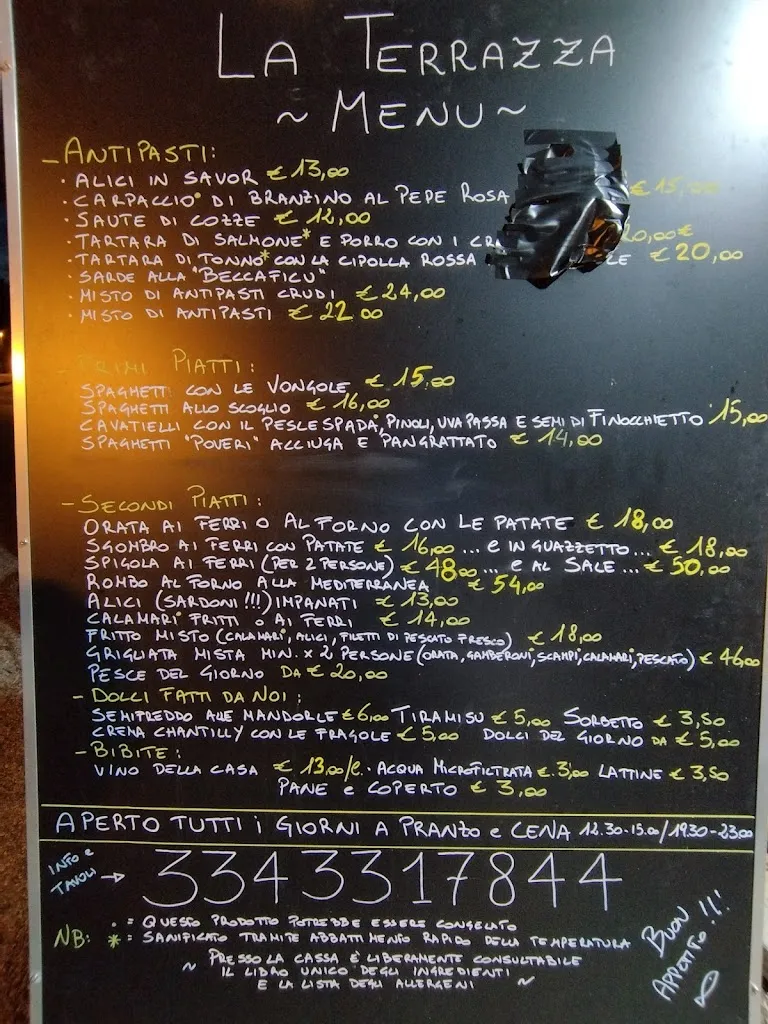 LA TERRAZZA
~ MENU ~
- ANTIPASTI:
· ALICI IN SAVOR € 13,00
· CARPACCIO* DI BRANZINO AL PEPE ROSA € 15,00
· SAUTE DI COZZE € 12,00
· TARTARA DI SALMONE* E PORRO CON I CR 20,00€
· TARTARA DI TONNO* CON LA CIPOLLA ROSSA LE € 20,00
· SARDE ALLA "BECCAFICU"
· MISTO DI ANTIPASTI CRUDI € 24,00
· MISTO DI ANTIPASTI € 22,00
- PRIMI PIATTI:
SPAGHETTI CON LE VONGOLE € 15,00
SPAGHETTI ALLO SCOGLIO € 16,00
CAVATIELLI CON IL PESCE SPADA, PINOLI, UVA PASSA E SEMI DI FINOCCHIETTO 15,00
SPAGHETTI "POVERI" ACCIUGA E PANGRATTATO € 14,00
- SECONDI PIATTI:
ORATA AI FERRI O AL FORNO CON LE PATATE € 18,00
SGOMBRO AI FERRI CON PATATE € 16,00 ... e IN GUAZZETTO... € 18,00
SPIGOLA AI FERRI (PER 2 PERSONE) € 48,00 ... e AL SALE ... € 50,00
ROMBO AL FORNO ALLA MEDITERRANEA € 54,00
ALICI (SARDONI !!!) IMPANATI € 13,00
CALAMARI FRITTI O AI FERRI € 14,00
FRITTO MISTO (CALAMARI, ALICI, FILETTI DI PESCATO FRESCO) € 18,00
GRIGLIATA MISTA MIN. x 2 PERSONE (ORATA, GAMBERONI, SCAMPI, CALAMARI, PESCATO) € 46,00
PESCE DEL GIORNO DA € 20,00
- DOLCI FATTI DA NOI:
SEMIFREDDO ALLE MANDORLE € 6,00 TIRAMISU € 5,00 SORBETTO € 3,50
CREMA CHANTILLY CON LE FRAGOLE € 5,00 DOLCI DEL GIORNO DA € 5,00
- BIBITE:
VINO DELLA CASA € 13,00/l. · ACQUA MICROFILTRATA €. 3,00 LATTINE € 3,50
PANE e COPERTO € 3,00
APERTO TUTTI i GIORNI A PRANZO e CENA 12.30-15.00/19.30-23.00
INFO e
TAVOLI → 3343317844
NB: · = QUESTO PRODOTTO POTREBBE ESSERE CONGELATO
* = SANIFICATO TRAMITE ABBATTIMENTO RAPIDO DELLA TEMPERATURA
~ PRESSO LA CASSA E' LIBERAMENTE CONSULTABILE
IL LIBRO UNICO DEGLI INGREDIENTI
E LA LISTA DEGLI ALLERGENI ~
BUON
APPETITO!!!